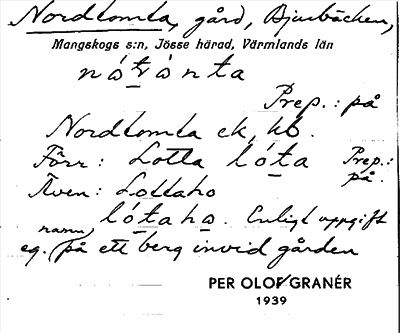 Nordtomta, gård, Bjurbäcken,
Mangskogs s:n, Jösse härad, Värmlands län
nótónta
Prep.: på
Nordtomta ek, kb.
Förr: Lotta lóta Prep.: på.
Även: Lottaho
lótaho. Enligt uppgift
eg. namn på ett berg invid gården
PER OLOF GRANÉR
1939